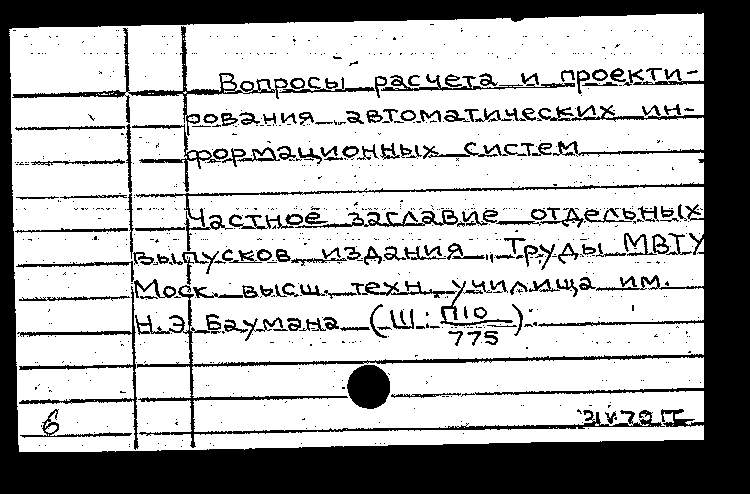 Вопросы расчета и проекти-
рования автоматических ин-
формационных систем
Частное заглавие отдельных
выпусков издания „Труды МВТУ
Моск. высш. техн. училища им.
Н.Э. Баумана (Ш: П10
775):
6